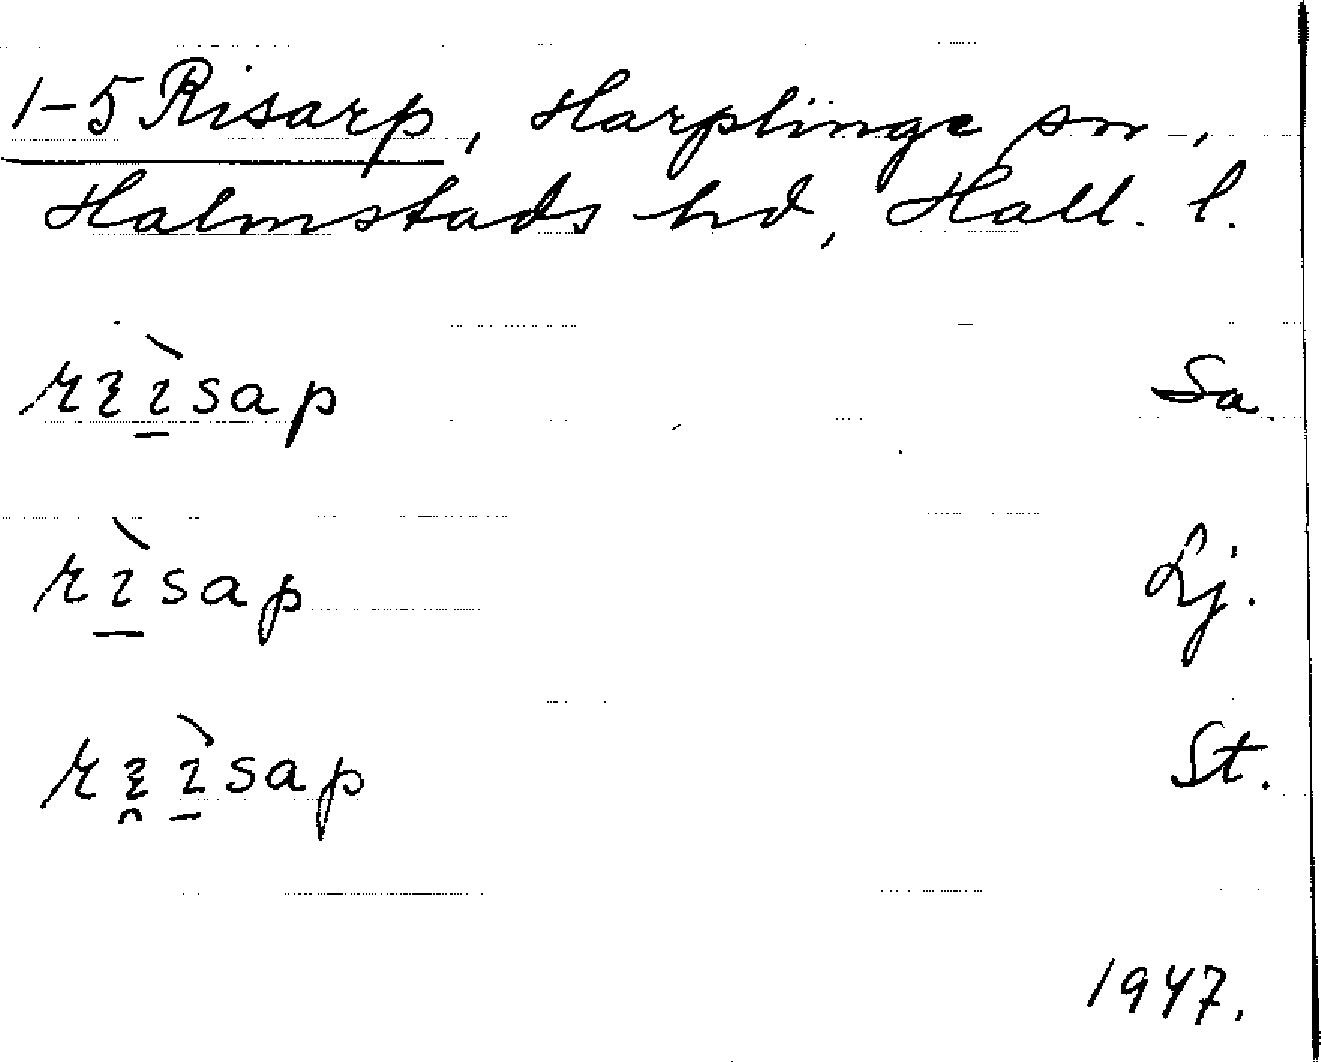 1-5 Risarp, Harplinge sn,
Halmstads hd, Hall. l.
Sa.
sap Lj.
sap St.
1947.